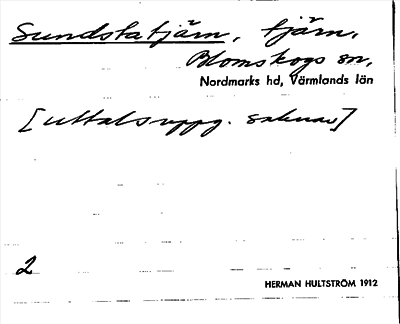 Sundstatjärn, tjärn,
Blomskogs sn,
Nordmarks hd, Värmlands län
[uttalsuppg. saknas]
2
HERMAN HULTSTRÖM 1912